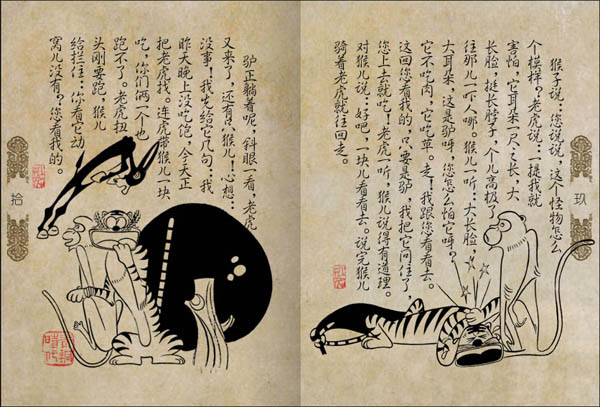 猴子说：您说说，这个怪物怎么
个模样？老虎说：一提我就
害怕，它耳朵一尺之长，大
长脸，挺长脖子，个儿高极了，
往那儿一吓人哪。猴儿一听：大长脸，
大耳朵，这是驴呀，您怎么怕它呀？
它不吃肉，它吃草。走！我跟您看看去。
这回您看我的，只要是驴，我把它问住了，
您上去就吃！老虎一听，猴儿说得有道理。
对猴儿说：好吧，一块儿看看去。说完猴儿
骑着老虎就往回走。
玖
驴正躺着呢，斜眼一看，老虎
又来了，还有个猴儿！心想：
没事！我先给它几句：我
昨天晚上没吃饱，今天正
把老虎找。连虎带猴儿一块
吃，你们俩一个也
跑不了。老虎扭
头刚要跑，猴儿
给拦住：你看它动
窝儿没有？您看我的。
拾